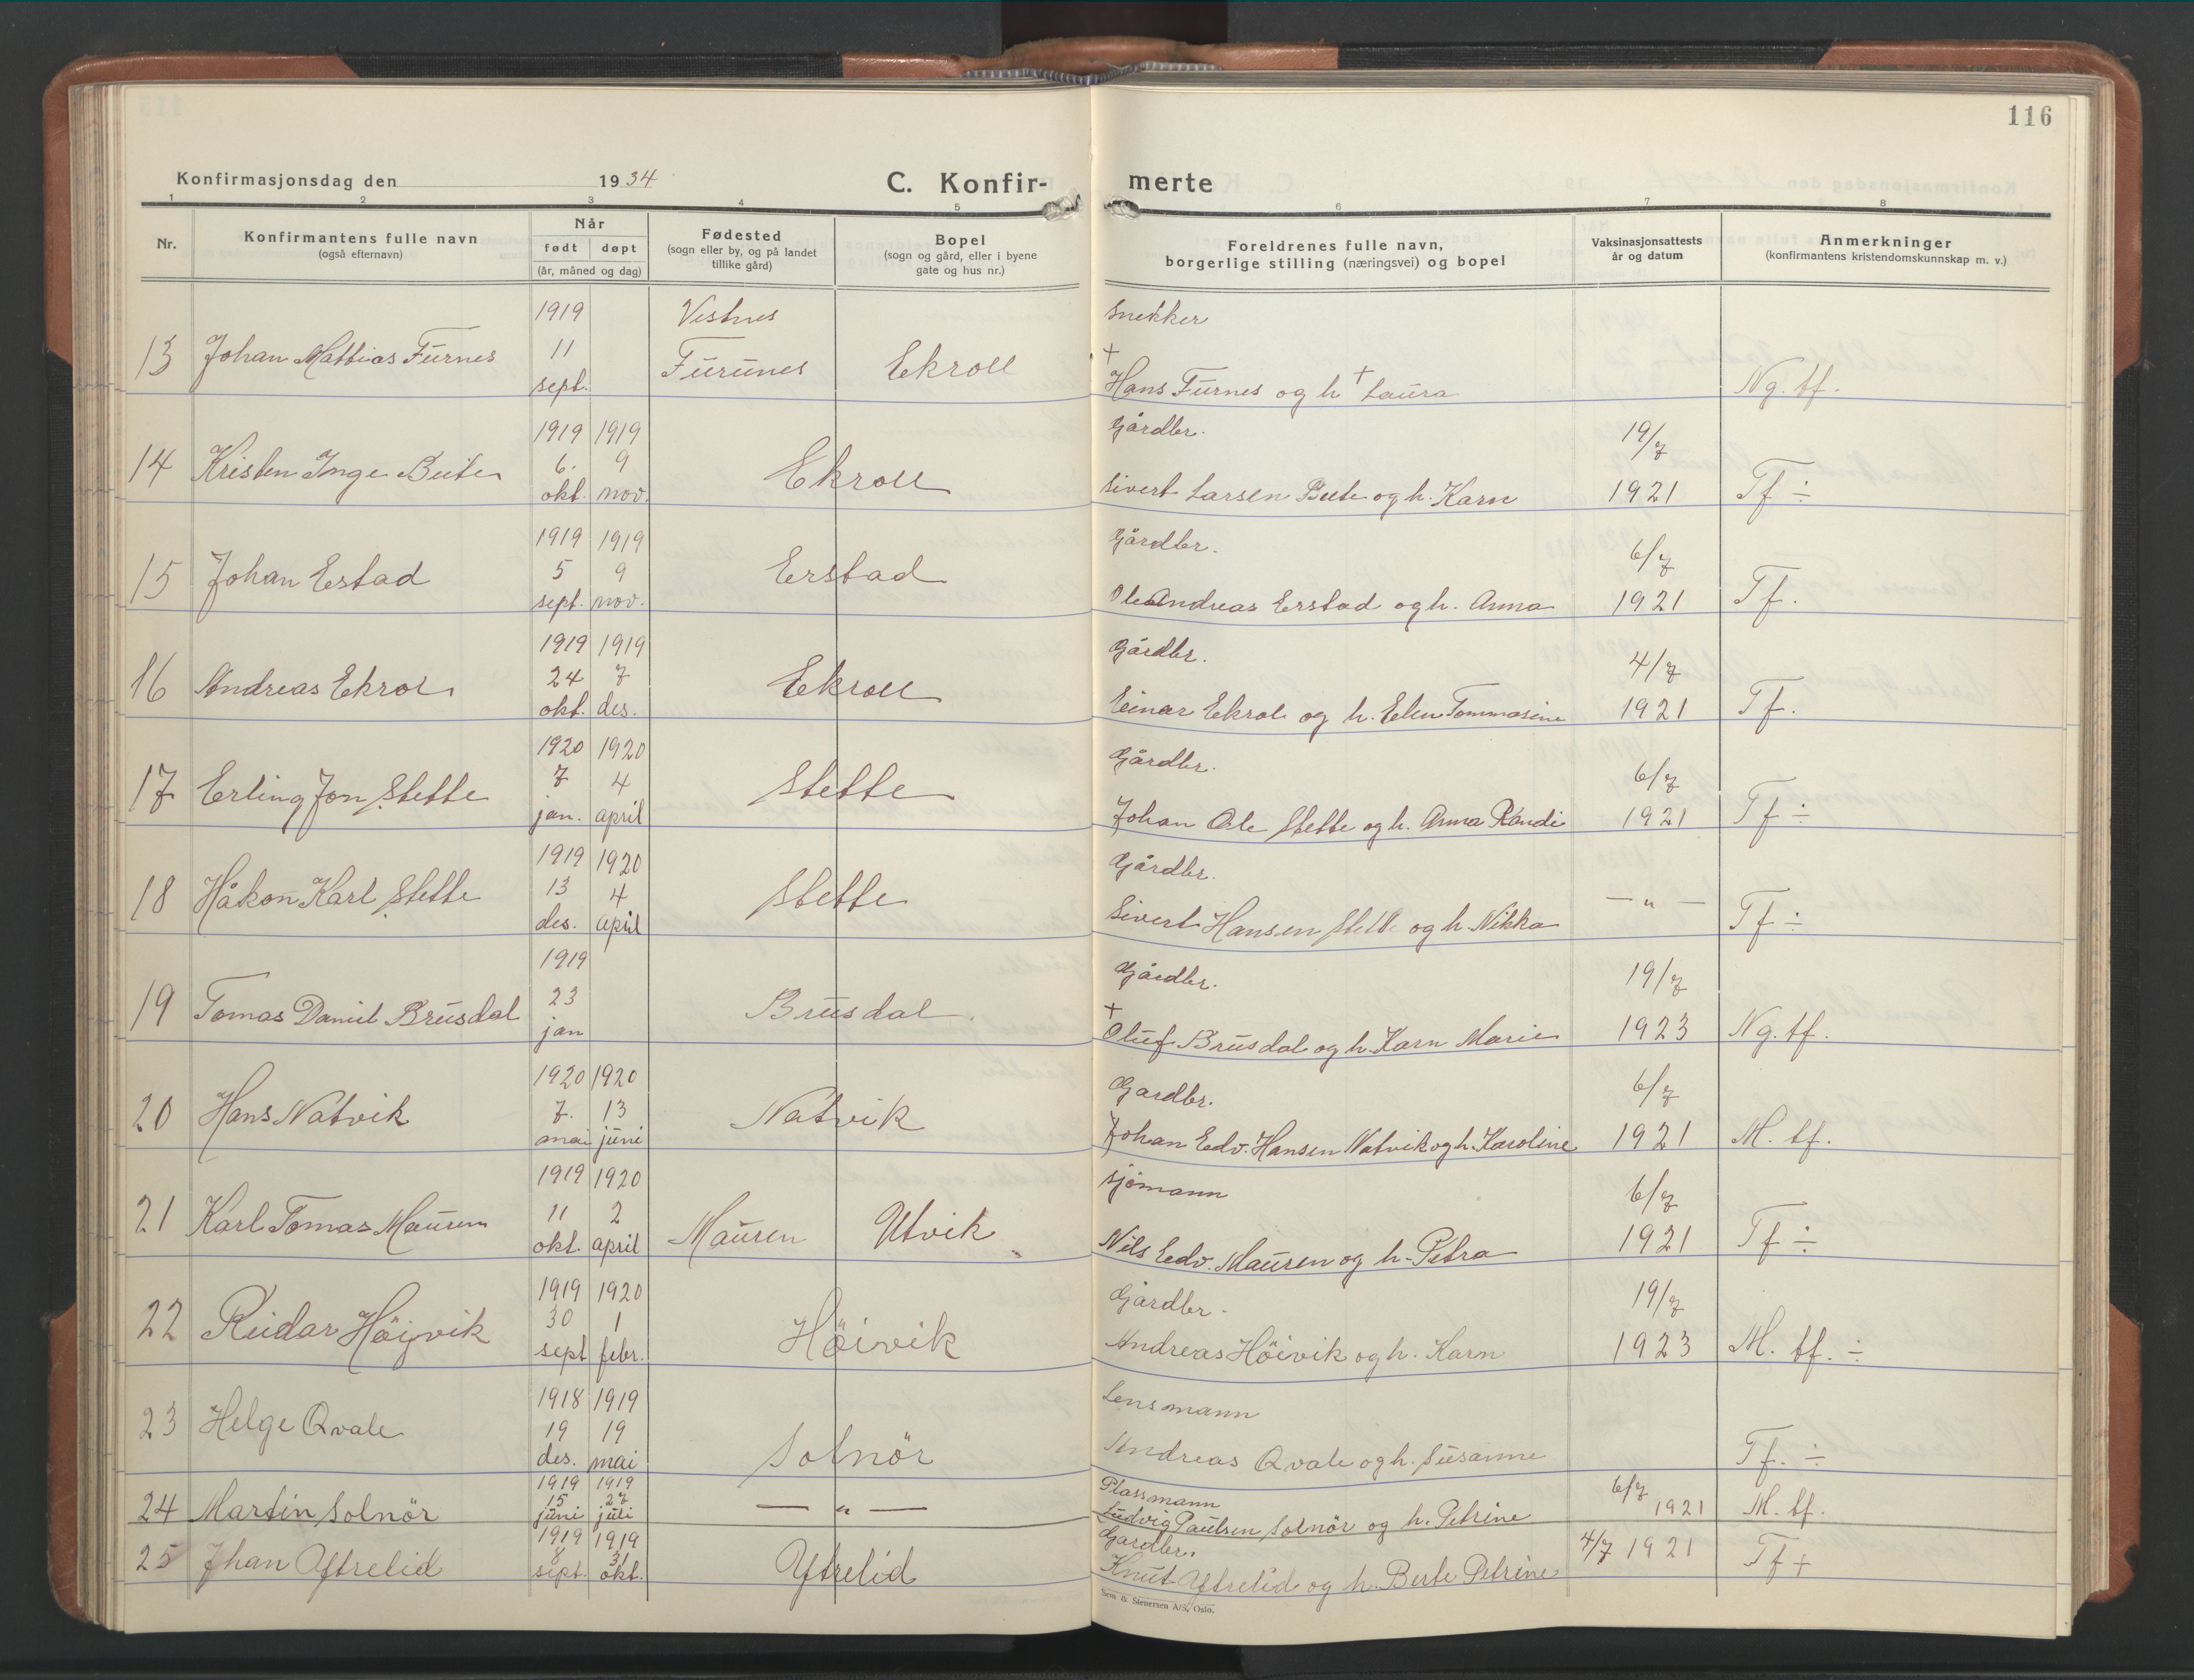 116
Konfirmasjonsdag den 1934 C. Konfir- merte
1 2 3 4 5 6 7 8
Nr. Konfirmantens fulle navn (også efternavn) Når født døpt (år, måned og dag) Fødested (sogn eller by, og på landet tillike gård) Bopel (sogn og gård, eller i byene gate og hus nr.) Foreldrenes fulle navn, borgerlige stilling (næringsvei) og bopel Vaksinasjonsattests år og datum Anmerkninger (konfirmantens kristendomskunnskap m. v.)
1919 Vestnes Snekker
13 Johan Mattias Furnes 11 sept. Furunes Ekroll + Hans Furnes og h + Laura Ng. tf.
1919 1919 Gårdbr. 19/7
14 Kristen Inge Beite 6. okt. 9 nov. Ekroll Sivert Larsen Beite og h. Karn 1921 Tf ÷
1919 1919 Gårdbr. 6/7
15 Johan Erstad 5 sept. 9 nov. Erstad Ole Andreas Erstad og h. Anna 1921 Tf.
1919 1919 Gårdbr. 4/7
16 Andreas Ekrol 24 okt. 7 des. Ekroll Einar Ekrol og h. Elen Tommasine 1921 Tf.
1920 1920 Gårdbr. 6/7
17 Erling Jon Stette 7 jan. 4 april Stette Johan Ole Stette og h. Anna Randi 1921 Tf ÷
1919 1920 Gårdbr.
18 Håkon Karl Stette 13 des. 4 april Stette Sivert Hansen Stette og h. Nikka — " — Tf ÷
1919 Gårdbr. 19/7
19 Tomas Daniel Brusdal 23 jan Brusdal. + Oluf Brusdal og h. Karn Marie 1923 Ng. tf.
1920 1920 Gardbr. 6/7
20 Hans Natvik 7. mai 13 juni Natvik Johan Edv. Hansen Natvik og h. Karoline 1921 M. tf.
1919 1920 Sjømann 6/7
21 Karl Tomas Mauren 11 okt. 2 april Mauren Utvik Nils Edv. Mauren og h. Petra 1921 Tf ÷
1919 1920 Gårdbr. 19/7
22 Reidar Höivik 30 sept 1 febr. Höivik Andreas Höivik og h. Karn 1923 M. tf. ÷
1918 1919 Lensmann
23 Helge Qvale 19 des. 19 mai Solnör Andreas Qvale og h. Susanne Tf. ÷
1919 1919 Plassmann 6/7
24 Martin Solnör 15 juni 27 juli — " — Ludvig Paulsen Solnör og h. Petrine 1921 M. tf.
1919 1919 Gardbr.
25 Jhan Ytrelid 8 sept. 31 okt. Ytrelid Knut Ytrelid og h. Berte Petrine 4/7 1921 Tf +
Sem & Stenersen A/S, Oslo.